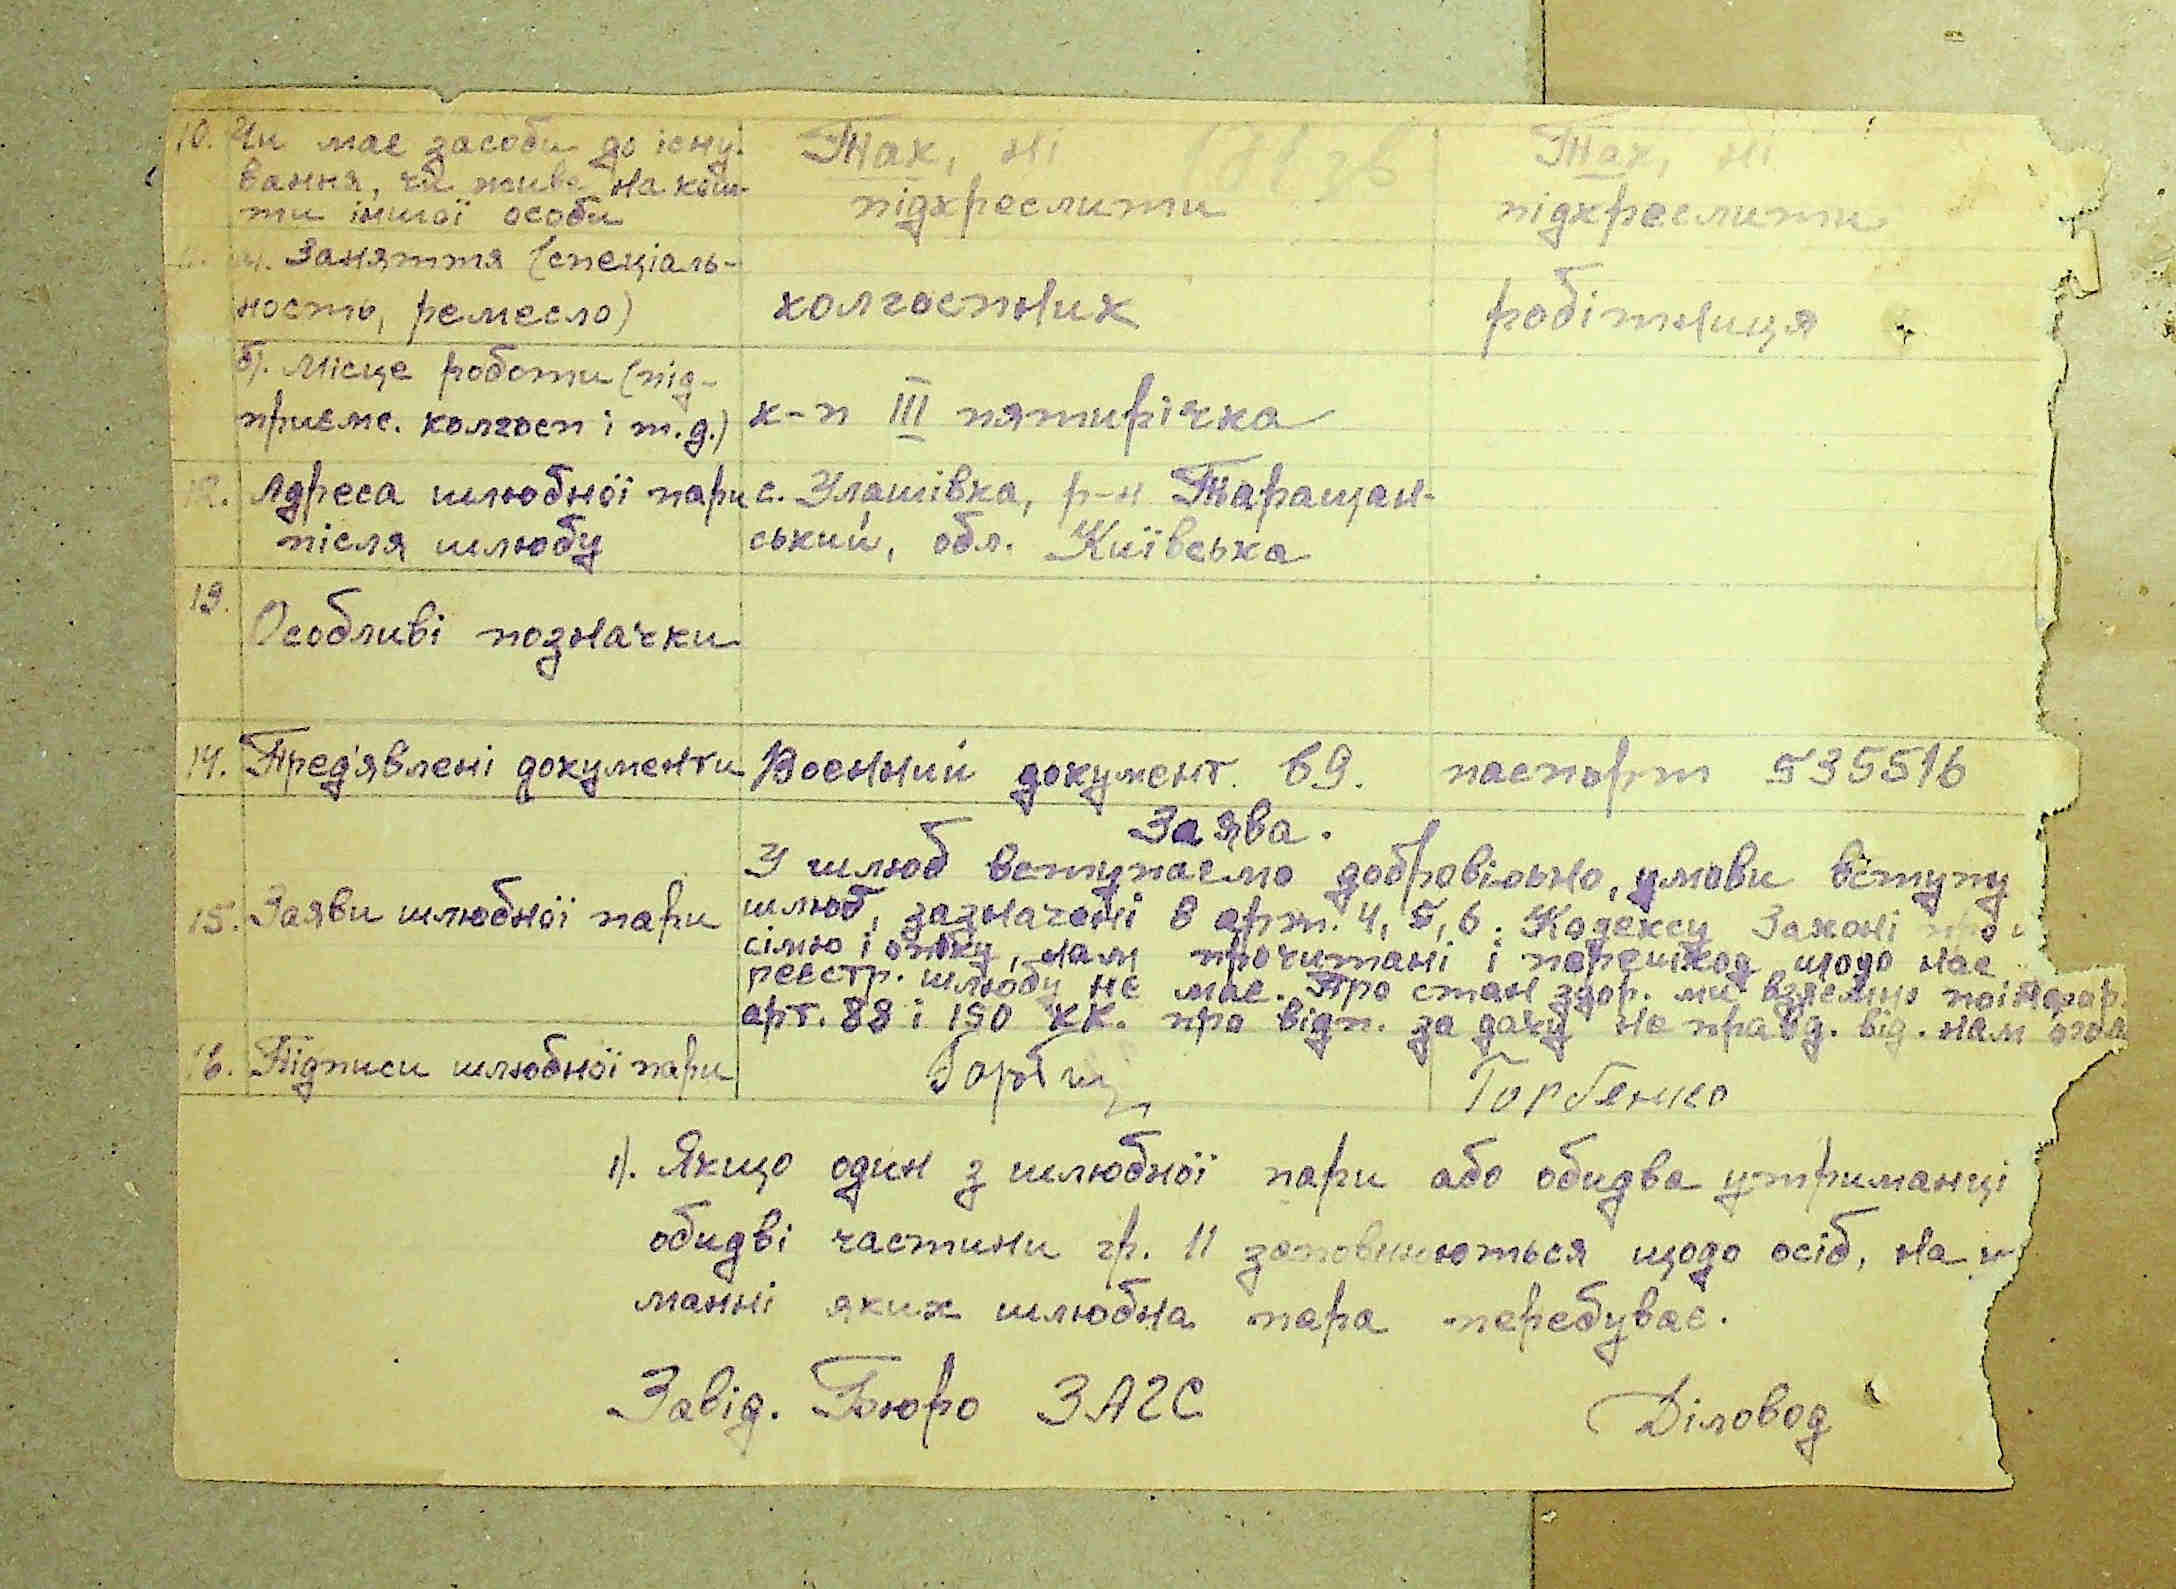 10. Чи має засоби до існу-
вання, чи живе на кош-
ти іншої особи
Так, ні
підкреслити
Так, ні
підкреслити
Заняття (спеціаль-
ность, ремесло)
колгоспник
робітниця
б). Місце роботи (під-
приємс. колгосп і т.д.)
к-п III пятирічка
12. Адреса шлюбної пари
після шлюбу
с. Улашівка, р-н Таращан-
ський, обл. Київська
13.
Особливі позначки
14. Пред'явлені документи
Воєнний документ 69.
паспорт 535516
Заява.
15. Заяви шлюбної пари
У шлюб вступаємо добровільно, умови вступу
шлюб, зазначені в арт. 4, 5, 6. Кодексу Закони про
сімю і опіку, нам прочитані і перешкод щодо нас
реєстр. шлюбу не має. Про стан здор. ми взаємно поінфор.
арт. 88 і 190 КК. про відп. за дачу не правд. від. нам
16. Підписи шлюбної пари
Горбенко
1). Якщо один з шлюбної пари або обидва утриманці
обидві частини гр. 11 заповнюються щодо осіб, на
манні яких шлюбна пара перебуває.
Завід. Бюро ЗАГС
Діловод